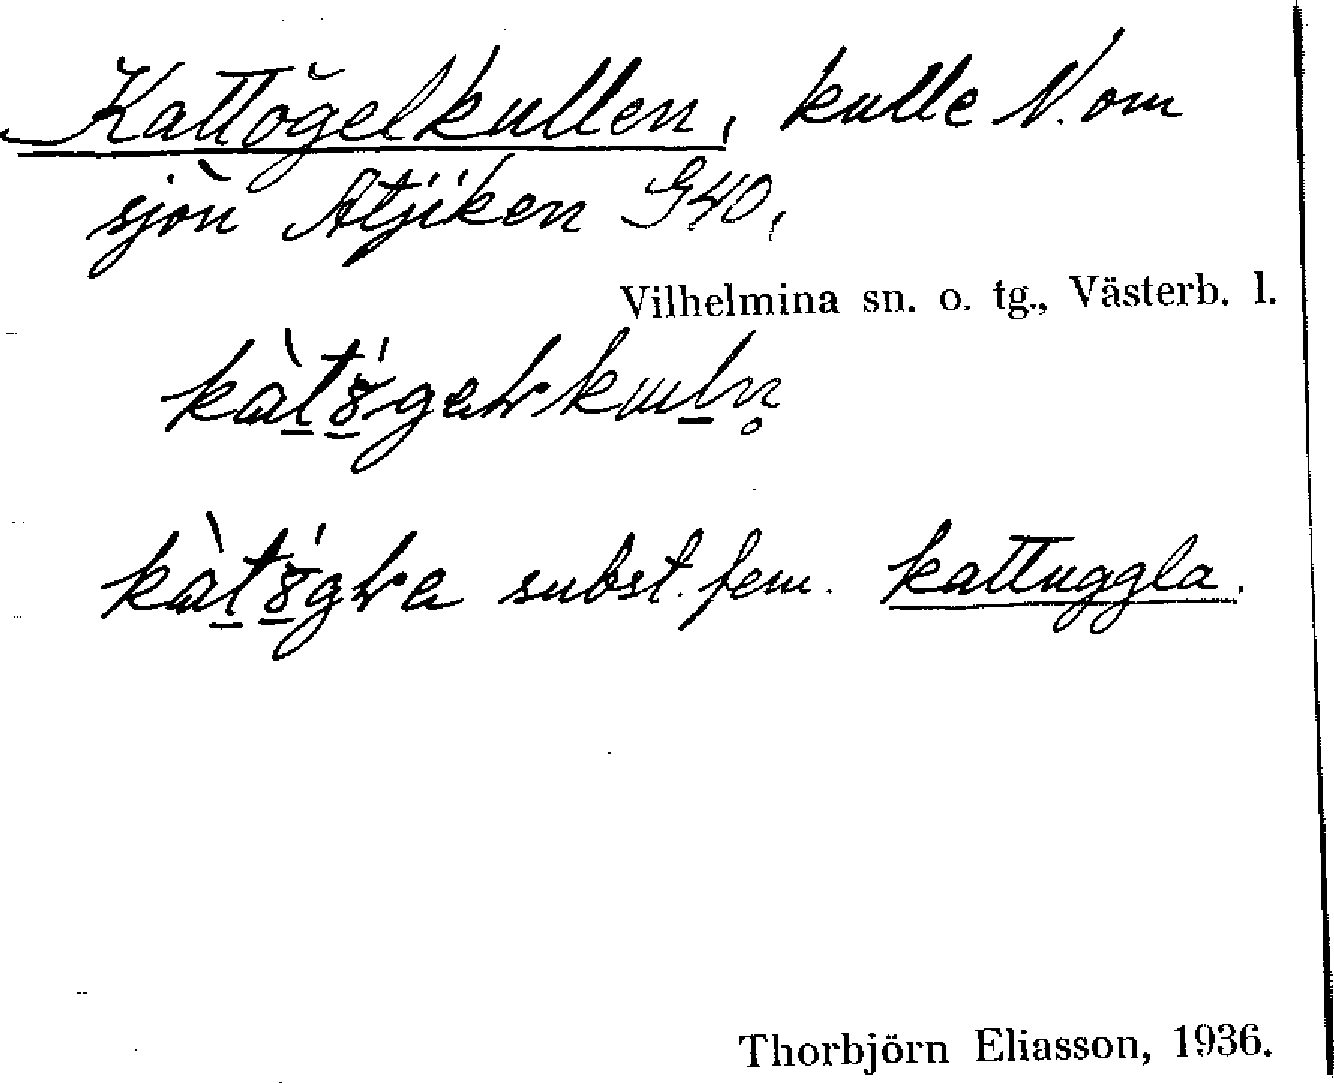 Kattögelkullen, kulle N. om
sjön Atjiken G40,
Vilhelmina sn. o. tg., Västerb. l.
subst. fem. kattuggla.
Thorbjörn Eliasson, 1936.